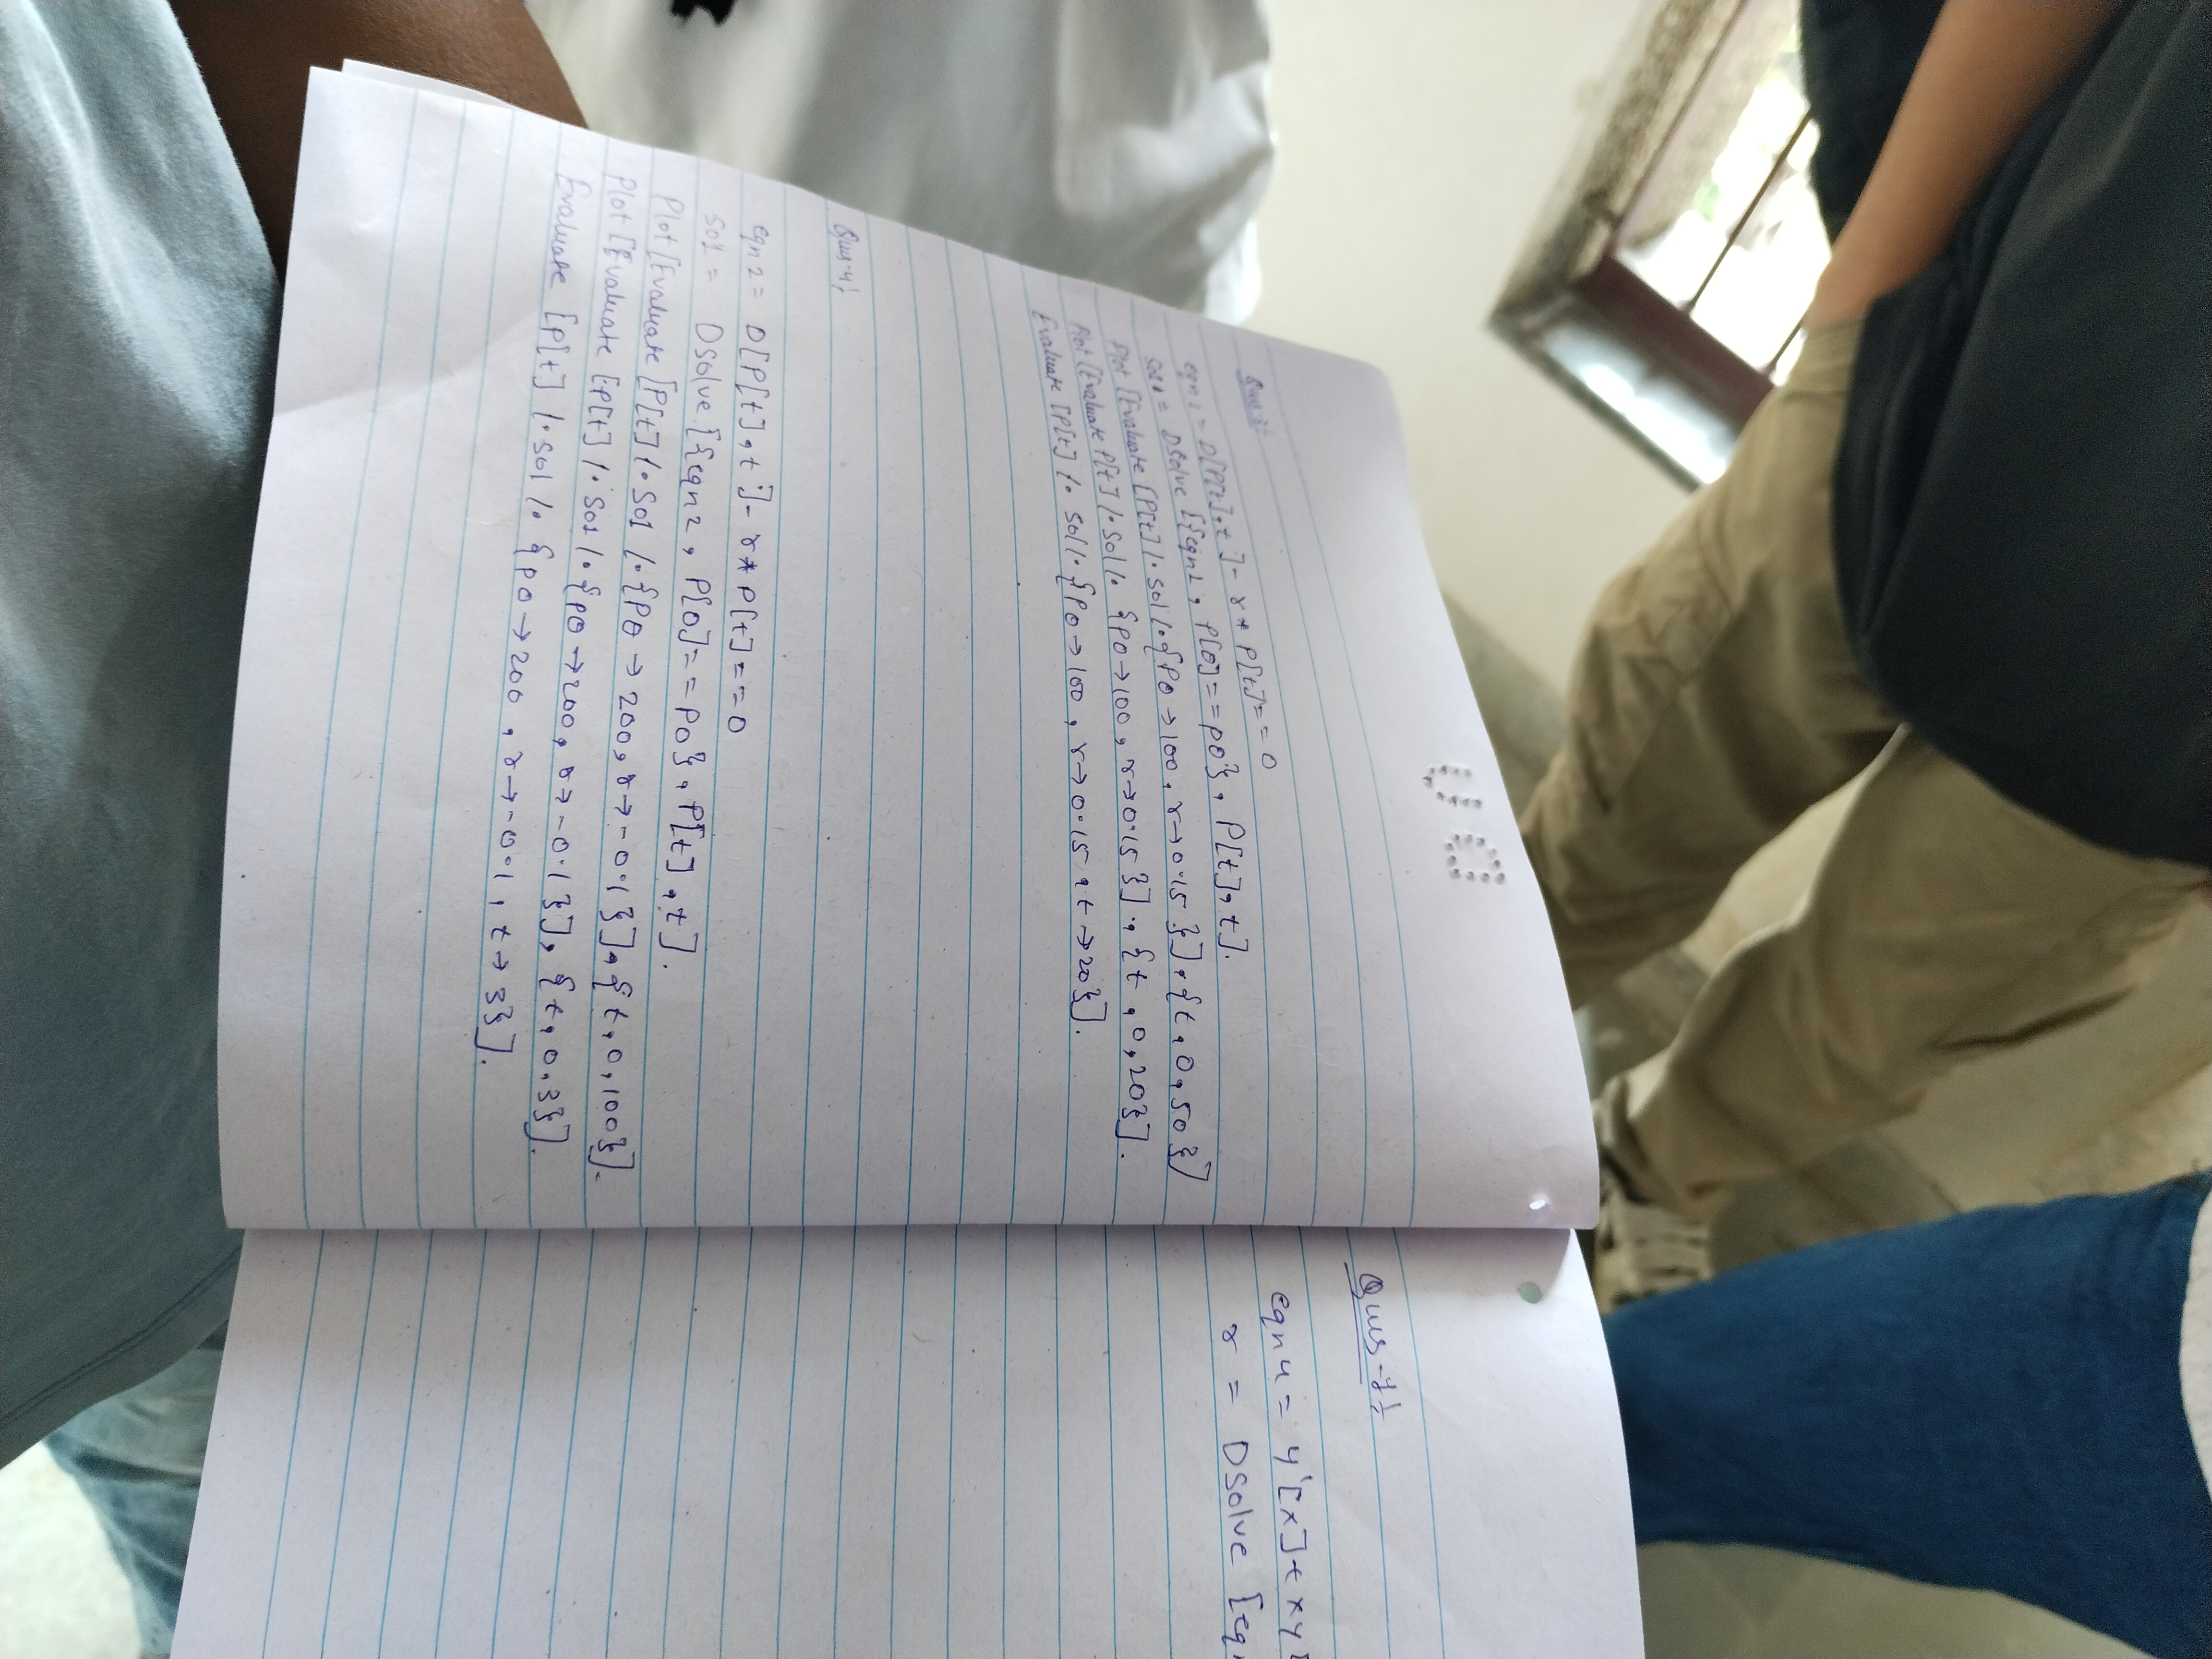 eqn 2 = D[P[t], t] - r * P[t] == 0
Sol = DSolve [{eqn2, P[0] == P0}, P[t], t].
Plot [Evaluate [P[t] /. Sol /. {P0 → 100, r → 0.15}], {t, 0, 50}]
Plot [Evaluate P[t] /. Sol /. {P0 → 100, r → 0.15}], {t, 0, 20}].
Evaluate [P[t] /. Sol /. {P0 → 100, r → 0.15, t → 20}].
Ques-4!
eqn 2 = D[P[t], t] - r * P[t] == 0
Sol = DSolve [{eqn2, P[0] == P0}, P[t], t].
Plot [Evaluate [P[t] /. Sol /. {P0 → 200, r → -0.1}], {t, 0, 100}].
Plot [Evaluate [P[t] /. Sol /. {P0 → 200, r → -0.1}], {t, 0, 3}].
Evaluate [P[t] /. Sol /. {P0 → 200, r → -0.1, t → 3}].
eqn 4 = y'[x] + xy
r = DSolve [eq